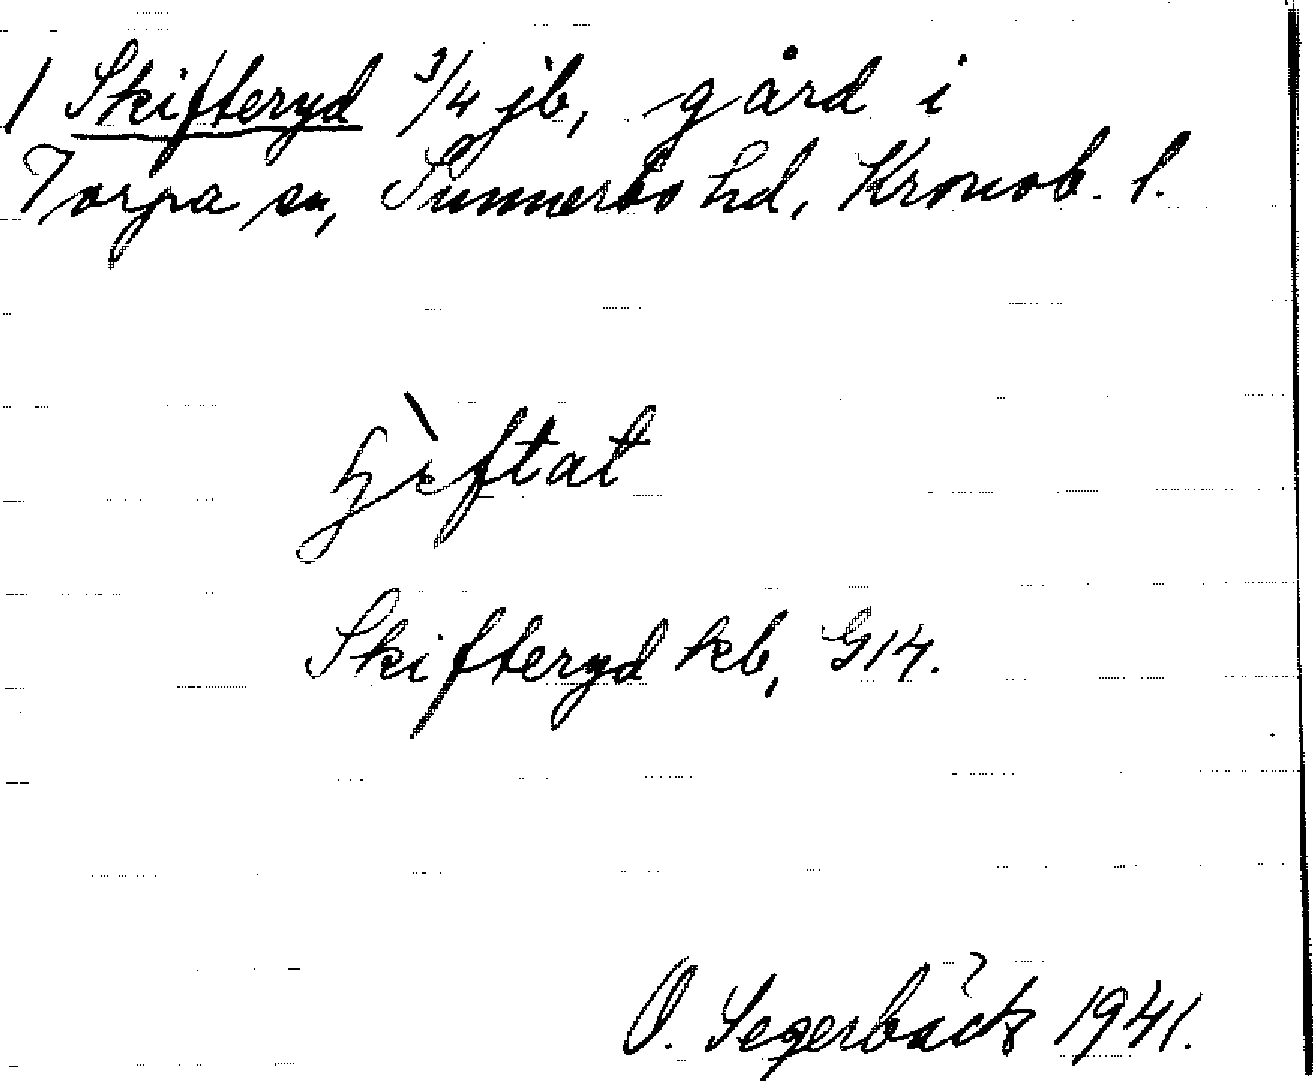 / Skifteryd 3/4 jb, gård i
Torpa sn, Sunnerbo hd, Kronob. l.
Skifteryd kb, G14.
O. Segerbäck 1941.